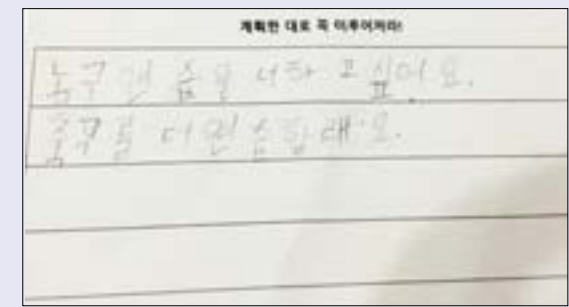 계획한 대로 꼭 이루어져라!
농구 연습을 더하고 싶어요.
농구를 더 연습할래요.